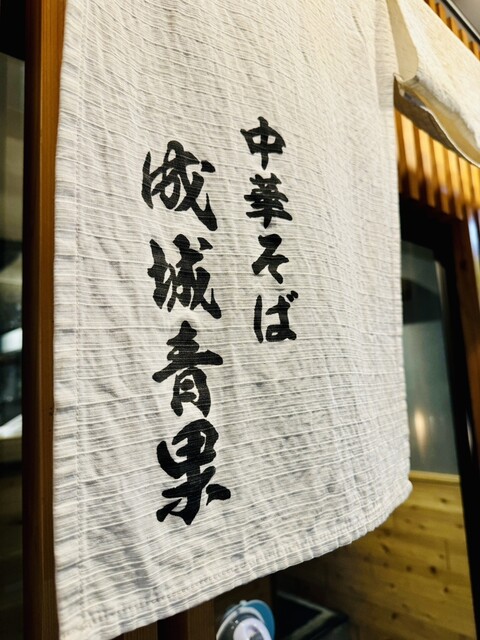 中華そば
成城青果